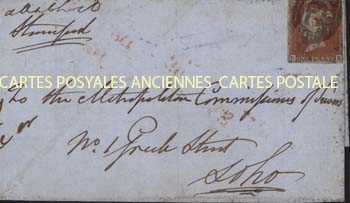 Stamford
ONE PENNY
CARTES POSYALES ANCIENNES- CARTES POSTALE
to the Metropolitan Commissioners of Sewers
No. 1 Greek Street
Soho